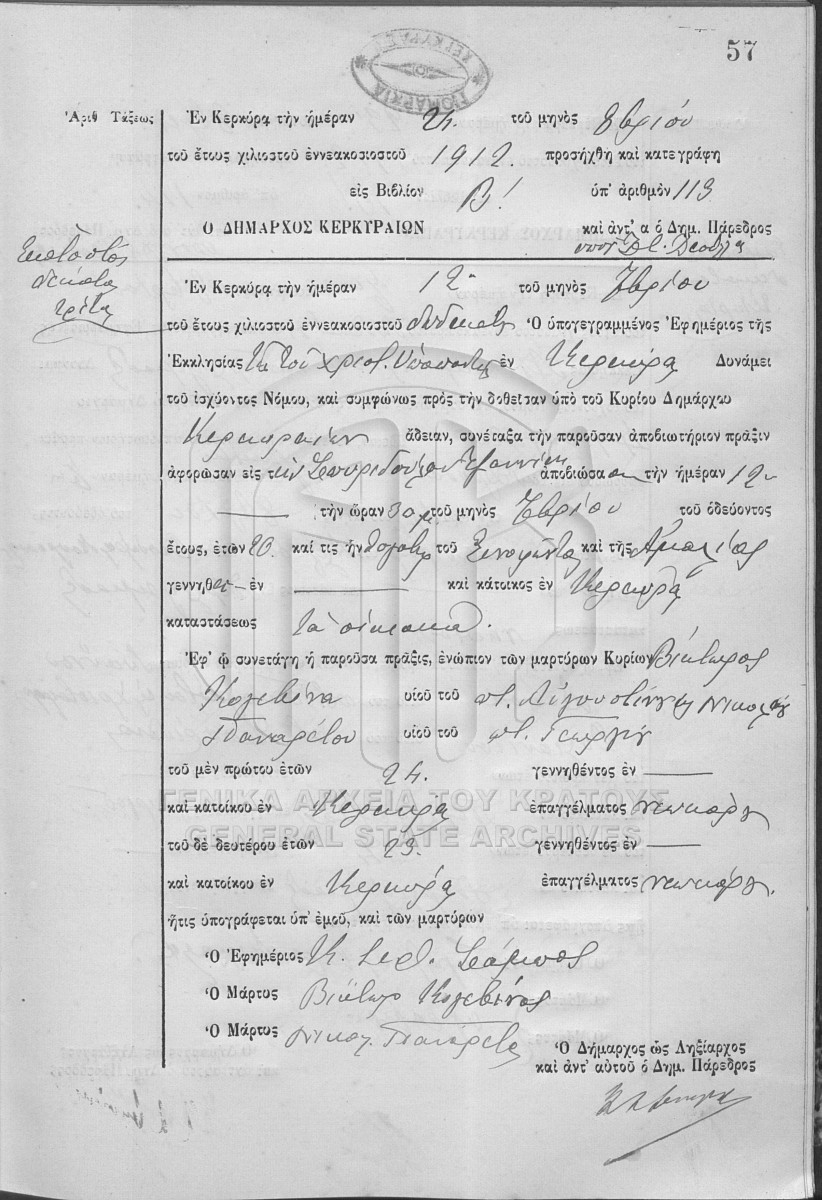 57
ΔΗΜΑΡΧΙΑ ΚΕΡΚΥΡΑΣ
Ἀριθ Τάξεως
Ἐν Κερκύρᾳ τὴν ἡμέραν 24. τοῦ μηνὸς 8βρίου
τοῦ ἔτους χιλιοστοῦ ἐννεακοσιοστοῦ 1912. προσήχθη καὶ κατεγράφη
εἰς Βιβλίον Β! ὑπ' ἀριθμὸν 113
Ο ΔΗΜΑΡΧΟΣ ΚΕΡΚΥΡΑΙΩΝ καὶ ἀντ' α ὁ Δημ. Πάρεδρος
Ἑκατοστός
δέκατος
τρίτος
Ἐν Κερκύρᾳ τὴν ἡμέραν 12 τοῦ μηνὸς
τοῦ ἔτους χιλιοστοῦ ἐννεακοσιοστοῦ δωδεκάτου Ὁ ὑπογεγραμμένος Ἐφημέριος τῆς
Ἐκκλησίας τῆς τοῦ Χριστ. Ὑπαπαντῆς ἐν Κερκύρᾳ Δυνάμει
τοῦ ἰσχύοντος Νόμου, καὶ συμφώνως πρὸς τὴν δοθεῖσαν ὑπὸ τοῦ Κυρίου Δημάρχου
Κερκυραίων ἄδειαν, συνέταξα τὴν παροῦσαν ἀποβιωτήριον πρᾶξιν
ἀφορῶσαν εἰς τὴν Σπυριδούλαν ἀποβιώσασαν τὴν ἡμέραν 12
τὴν ὥραν 3 τοῦ μηνὸς τοῦ ὁδεύοντος
ἔτους, ἐτῶν 20. καί τις ἦν θυγάτηρ τοῦ Ξενοφῶντος καὶ τῆς Ἀμαλίας
γεννηθεῖσα ἐν καὶ κάτοικος ἐν Κερκύρᾳ
καταστάσεως τὰ οἰκιακά.
Ἐφ' ᾧ συνετάγη ἡ παροῦσα πρᾶξις, ἐνώπιον τῶν μαρτύρων Κυρίων Βίκτωρος
Κολεβίνα υἱοῦ τοῦ ποτ. Αὐγουστίνου καὶ Νικολάου
Παναρέτου υἱοῦ τοῦ ποτ. Γεωργίου
τοῦ μὲν πρώτου ἐτῶν 24. γεννηθέντος ἐν
ΓΕΝΙΚΑ ΑΡΧΕΙΑ ΤΟΥ ΚΡΑΤΟΥΣ
καὶ κατοίκου ἐν Κερκύρᾳ ἐπαγγέλματος
GENERAL STATE ARCHIVES
τοῦ δὲ δευτέρου ἐτῶν 23. γεννηθέντος ἐν
καὶ κατοίκου ἐν Κερκύρᾳ ἐπαγγέλματος
ἥτις ὑπογράφεται ὑπ' ἐμοῦ, καὶ τῶν μαρτύρων
Ὁ Ἐφημέριος
Ὁ Μάρτυς Βίκτωρ Κολεβίνας
Ὁ Μάρτυς Νικολ. Πανάρετος
Ὁ Δήμαρχος ὡς Ληξίαρχος
καὶ ἀντ' αὐτοῦ ὁ Δημ. Πάρεδρος